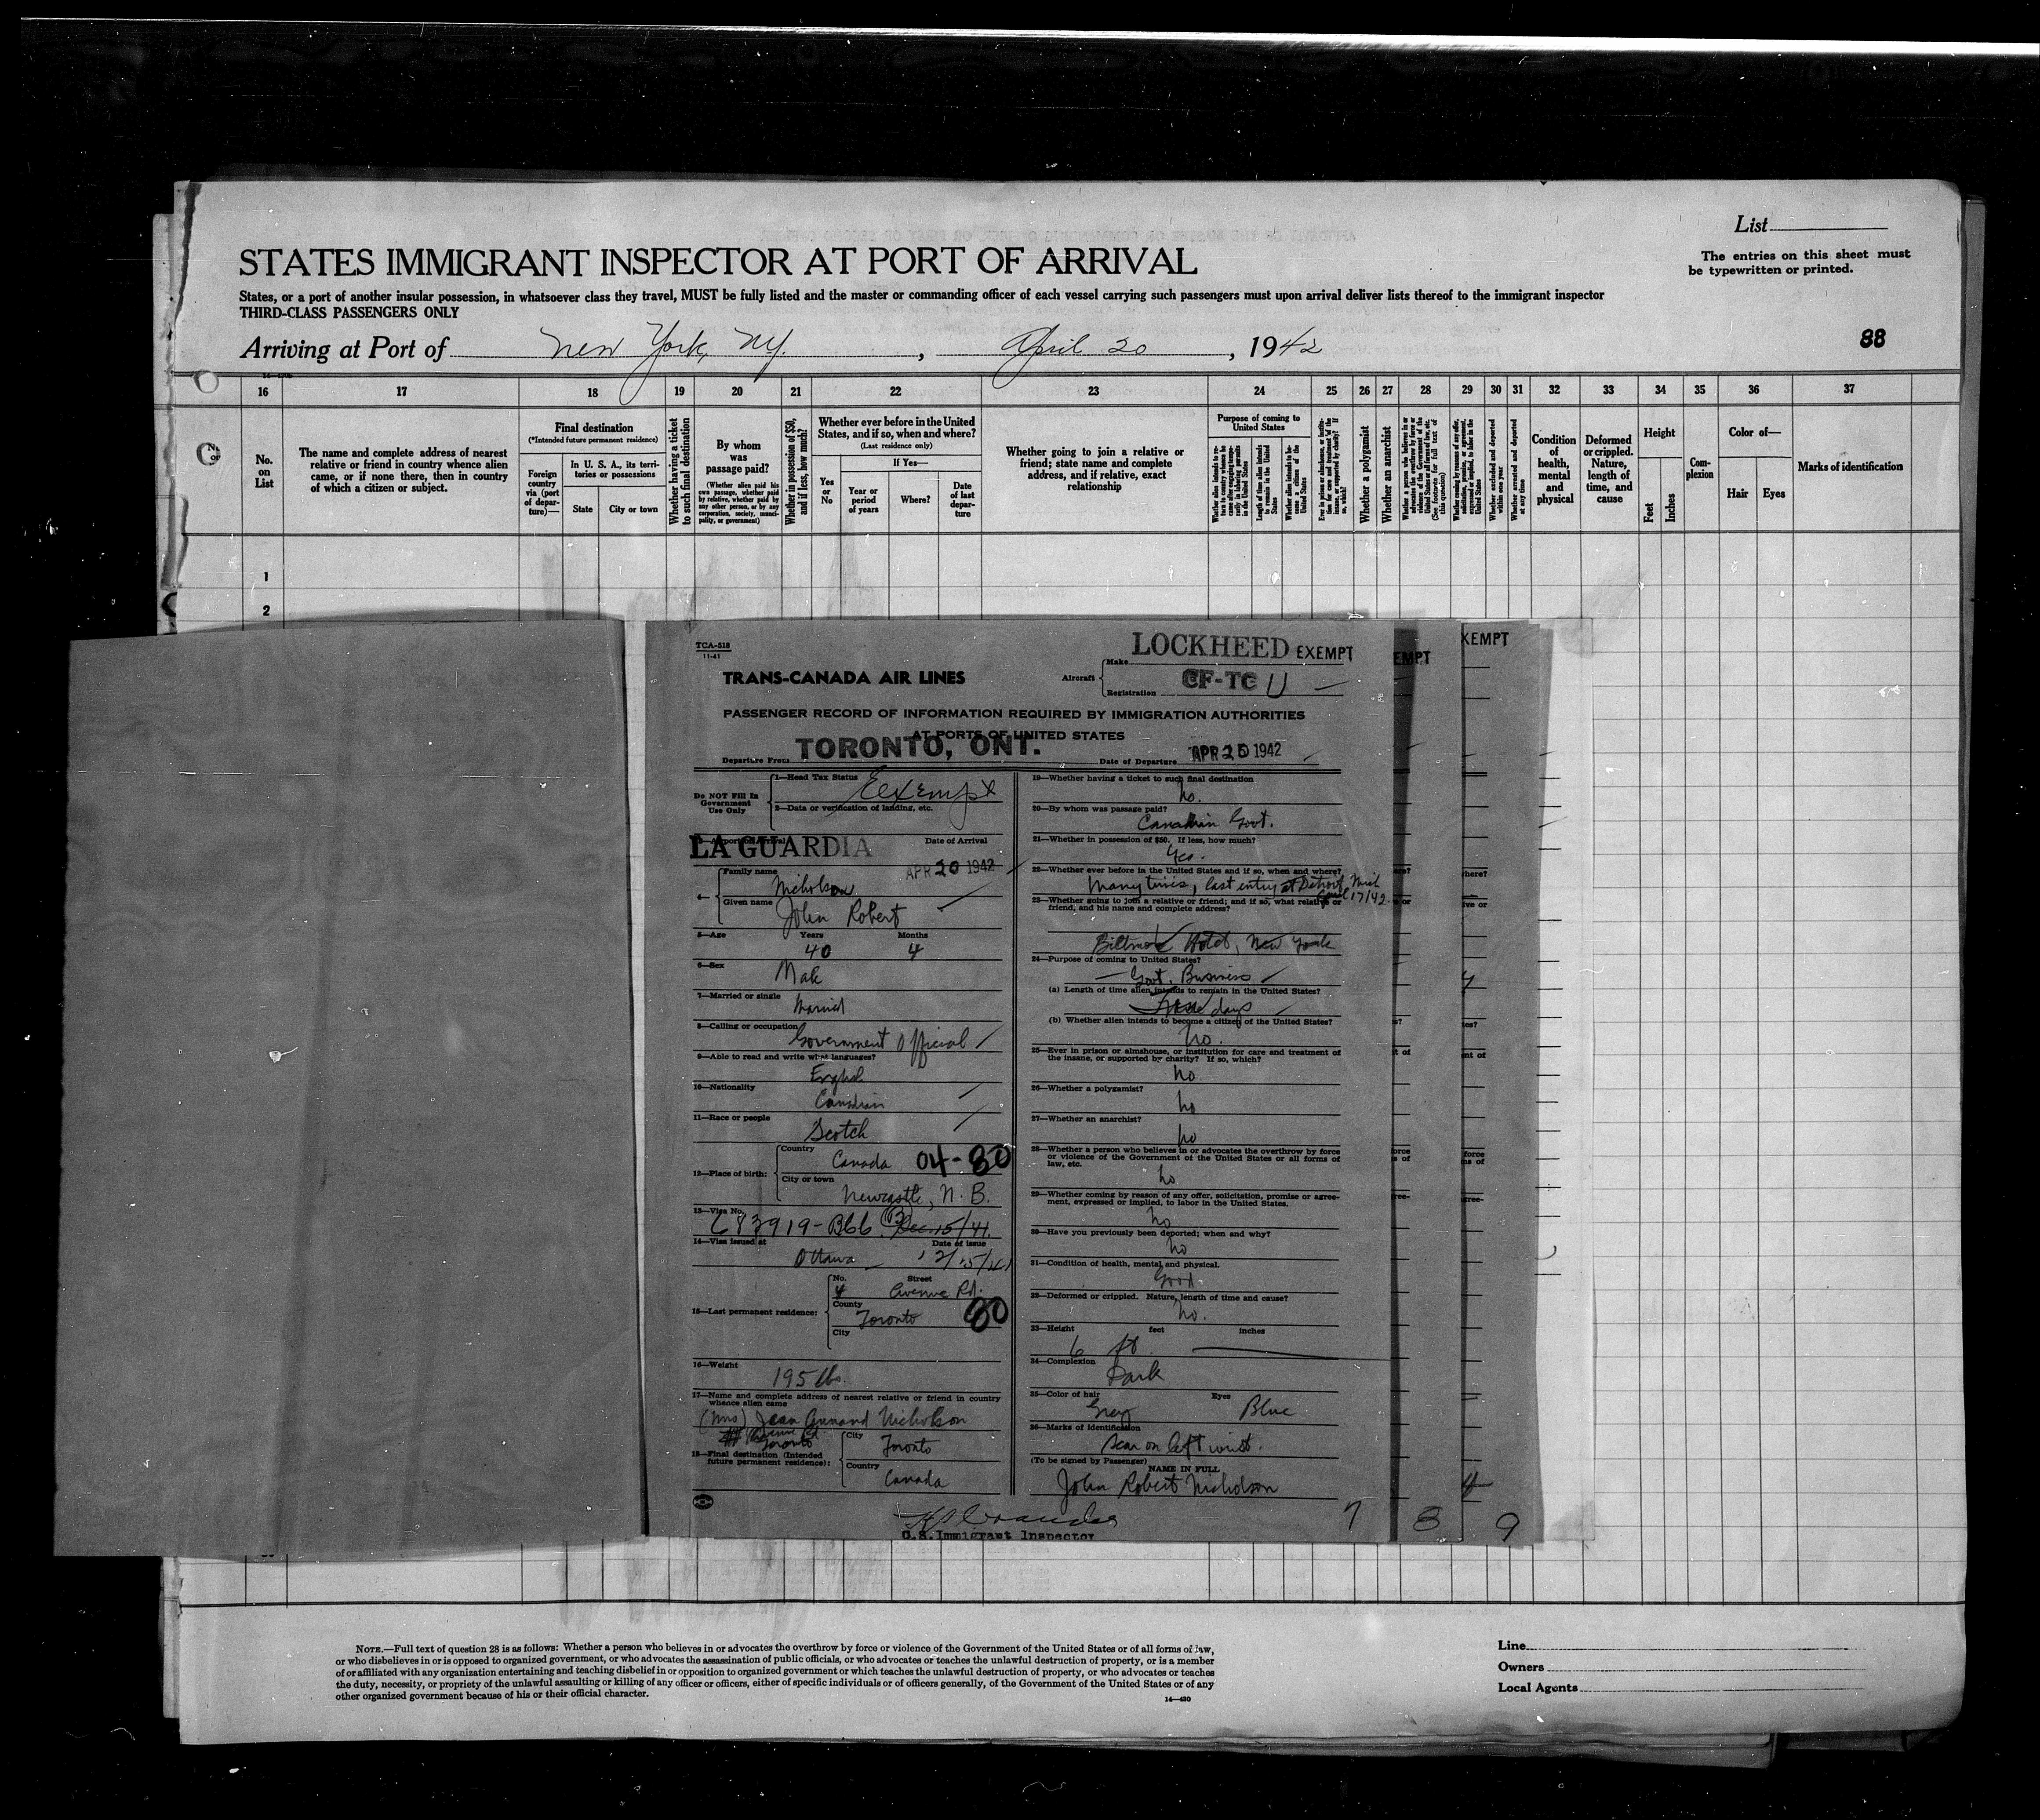 List
STATES IMMIGRANT INSPECTOR AT PORT OF ARRIVAL
The entries on this sheet must
be typewritten or printed.
States, or a port of another insular possession, in whatsoever class they travel, MUST be fully listed and the master or commanding officer of each vessel carrying such passengers must upon arrival deliver lists thereof to the immigrant inspector
THIRD-CLASS PASSENGERS ONLY
Arriving at Port of New York, N.Y. , April 20 , 1942
88
16 17 18 19 20 21 22 23 24 25 26 27 28 29 30 31 32 33 34 35 36 37
No. on List
The name and complete address of nearest
relative or friend in country whence alien
came, or if none there, then in country
of which a citizen or subject.
Final destination
(*Intended future permanent residence)
Foreign country via (port of departure)—
In U. S. A., its territories or possessions
State
City or town
Whether having a ticket to such final destination
By whom was passage paid?
(Whether alien paid his own passage, whether paid by relative, whether paid by any other person, or by any corporation, society, municipality, or government)
Whether in possession of $50, and if less, how much?
Whether ever before in the United
States, and if so, when and where?
(Last residence only)
Yes or No
If Yes—
Year or period of years
Where?
Date of last departure
Whether going to join a relative or
friend; state name and complete
address, and if relative, exact
relationship
Purpose of coming to United States
Whether a polygamist
Whether an anarchist
Condition of health, mental and physical
Deformed or crippled. Nature, length of time, and cause
Height
Feet
Inches
Complexion
Color of—
Hair
Eyes
Marks of identification
1
2
TCA-518
11-41
LOCKHEED EXEMPT
EMPT
XEMPT
TRANS-CANADA AIR LINES
Aircraft
Make
Registration CF-TC U
PASSENGER RECORD OF INFORMATION REQUIRED BY IMMIGRATION AUTHORITIES
AT PORTS OF UNITED STATES
Departure From: TORONTO, ONT.
Date of Departure APR 20 1942
Do NOT Fill In Government Use Only
1—Head Tax Status Exempt
2—Data or verification of landing, etc.
LA GUARDIA
Date of Arrival
APR 20 1942
4—
Family name
Nicholson
Given name
John Robert
5—Age Years Months
40 4
6—Sex
Male
7—Married or single
Married
8—Calling or occupation
Government Official
9—Able to read and write what languages?
English
10—Nationality
Canadian
11—Race or people
Scotch
12—Place of birth:
Country
Canada 04-80
City or town
Newcastle, N. B.
13—Visa No.
683919-B66 Dec. 15/41.
14—Visa issued at Date of issue
Ottawa 12/15/41
15—Last permanent residence:
No. Street
4 Avenue Rd.
County
Toronto 80
City
16—Weight
195 lbs.
17—Name and complete address of nearest relative or friend in country
whence alien came
(Mrs) Jean Annand Nicholson
Avenue Rd.
Toronto
18—Final destination (Intended
future permanent residence):
City
Toronto
Country
Canada
19—Whether having a ticket to such final destination
no.
20—By whom was passage paid?
Canadian Govt.
21—Whether in possession of $50. If less, how much?
Yes.
22—Whether ever before in the United States and if so, when and where?
Many times, last entry at Detroit, Mich
April 17/42.
23—Whether going to join a relative or friend; and if so, what relative or
friend, and his name and complete address?
Biltmore Hotel, New York
24—Purpose of coming to United States?
Govt. Business
(a) Length of time alien intends to remain in the United States?
days
(b) Whether alien intends to become a citizen of the United States?
No.
25—Ever in prison or almshouse, or institution for care and treatment of
the insane, or supported by charity? If so, which?
no.
26—Whether a polygamist?
no
27—Whether an anarchist?
no
28—Whether a person who believes in or advocates the overthrow by force
or violence of the Government of the United States or all forms of
law, etc.
no
29—Whether coming by reason of any offer, solicitation, promise or agree-
ment, expressed or implied, to labor in the United States.
no
30—Have you previously been deported; when and why?
no
31—Condition of health, mental and physical.
Good
32—Deformed or crippled. Nature, length of time and cause?
no.
33—Height feet inches
6 ft
34—Complexion
Dark
35—Color of hair Eyes
Grey Blue
36—Marks of identification
scar on left wrist.
(To be signed by Passenger)
NAME IN FULL
John Robert Nicholson
U.S. Immigrant Inspector
7
8
9
NOTE.—Full text of question 28 is as follows: Whether a person who believes in or advocates the overthrow by force or violence of the Government of the United States or of all forms of law,
or who disbelieves in or is opposed to organized government, or who advocates the assassination of public officials, or who advocates or teaches the unlawful destruction of property, or is a member
of or affiliated with any organization entertaining and teaching disbelief in or opposition to organized government or which teaches the unlawful destruction of property, or who advocates or teaches
the duty, necessity, or propriety of the unlawful assaulting or killing of any officer or officers, either of specific individuals or of officers generally, of the Government of the United States or of any
other organized government because of his or their official character.
14—430
Line
Owners
Local Agents